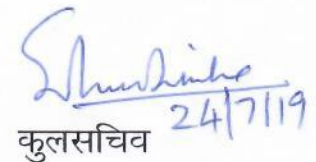 24/7/19
कुलसचिव